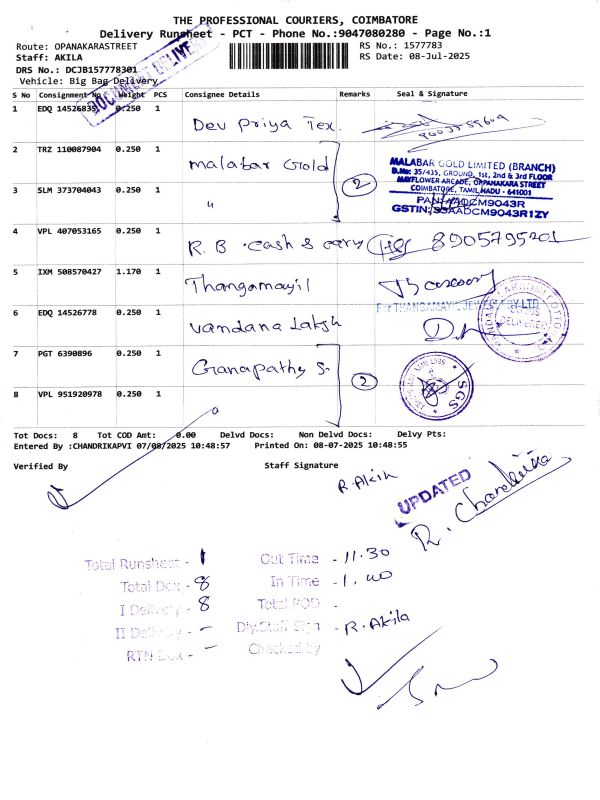 THE PROFESSIONAL COURIERS, COIMBATORE
Delivery Runsheet - PCT - Phone No.:9047080280 - Page No.:1
Route: OPANAKARASTREET
RS No.: 1577783
Staff: AKILA
RS Date: 08-Jul-2025
DRS No.: DCJB157778301
Vehicle: Big Bag Delivery
DOCUMENT DELIVE
S No Consignment No Weight PCS Consignee Details Remarks Seal & Signature
1 EDQ 14526835 0.250 1 Dev Priya Tex.
2 TRZ 110087904 0.250 1 Malabar Gold
3 SLM 373704043 0.250 1 "
2
MALABAR GOLD LIMITED (BRANCH)
D.No: 35/435, GROUND, 1st, 2nd & 3rd FLOOR
MAYFLOWER ARCADE, OPPANAKARA STREET
COIMBATORE, TAMIL NADU - 641001
PAN: AADCM9043R
GSTIN: 33AADCM9043R1ZY
4 VPL 407053165 0.250 1 R.B cash & cary 8905795201
5 IXM 508570427 1.170 1 Thangamayil
For THANGAMAYIL JEWELLERY LTD
6 EDQ 14526778 0.250 1 Vandana Laksh
DELIVERED
7 PGT 6390896 0.250 1 Ganapathy S.
8 VPL 951920978 0.250 1
2
SGS
Tot Docs: 8 Tot COD Amt: 0.00 Delvd Docs: Non Delvd Docs: Delvy Pts:
Entered By :CHANDRIKAPVI 07/08/2025 10:48:57 Printed On: 08-07-2025 10:48:55
Verified By Staff Signature
R.Akila
UPDATED
R. Chandrika
Total Runsheet - 1 Out Time - 11.30
Total Dox - 8 In Time - 1.40
I Delivery - 8 Total POD -
II Delivery - - Dly.Staff Sign - R.Akila
RTN Dox - - Checked by